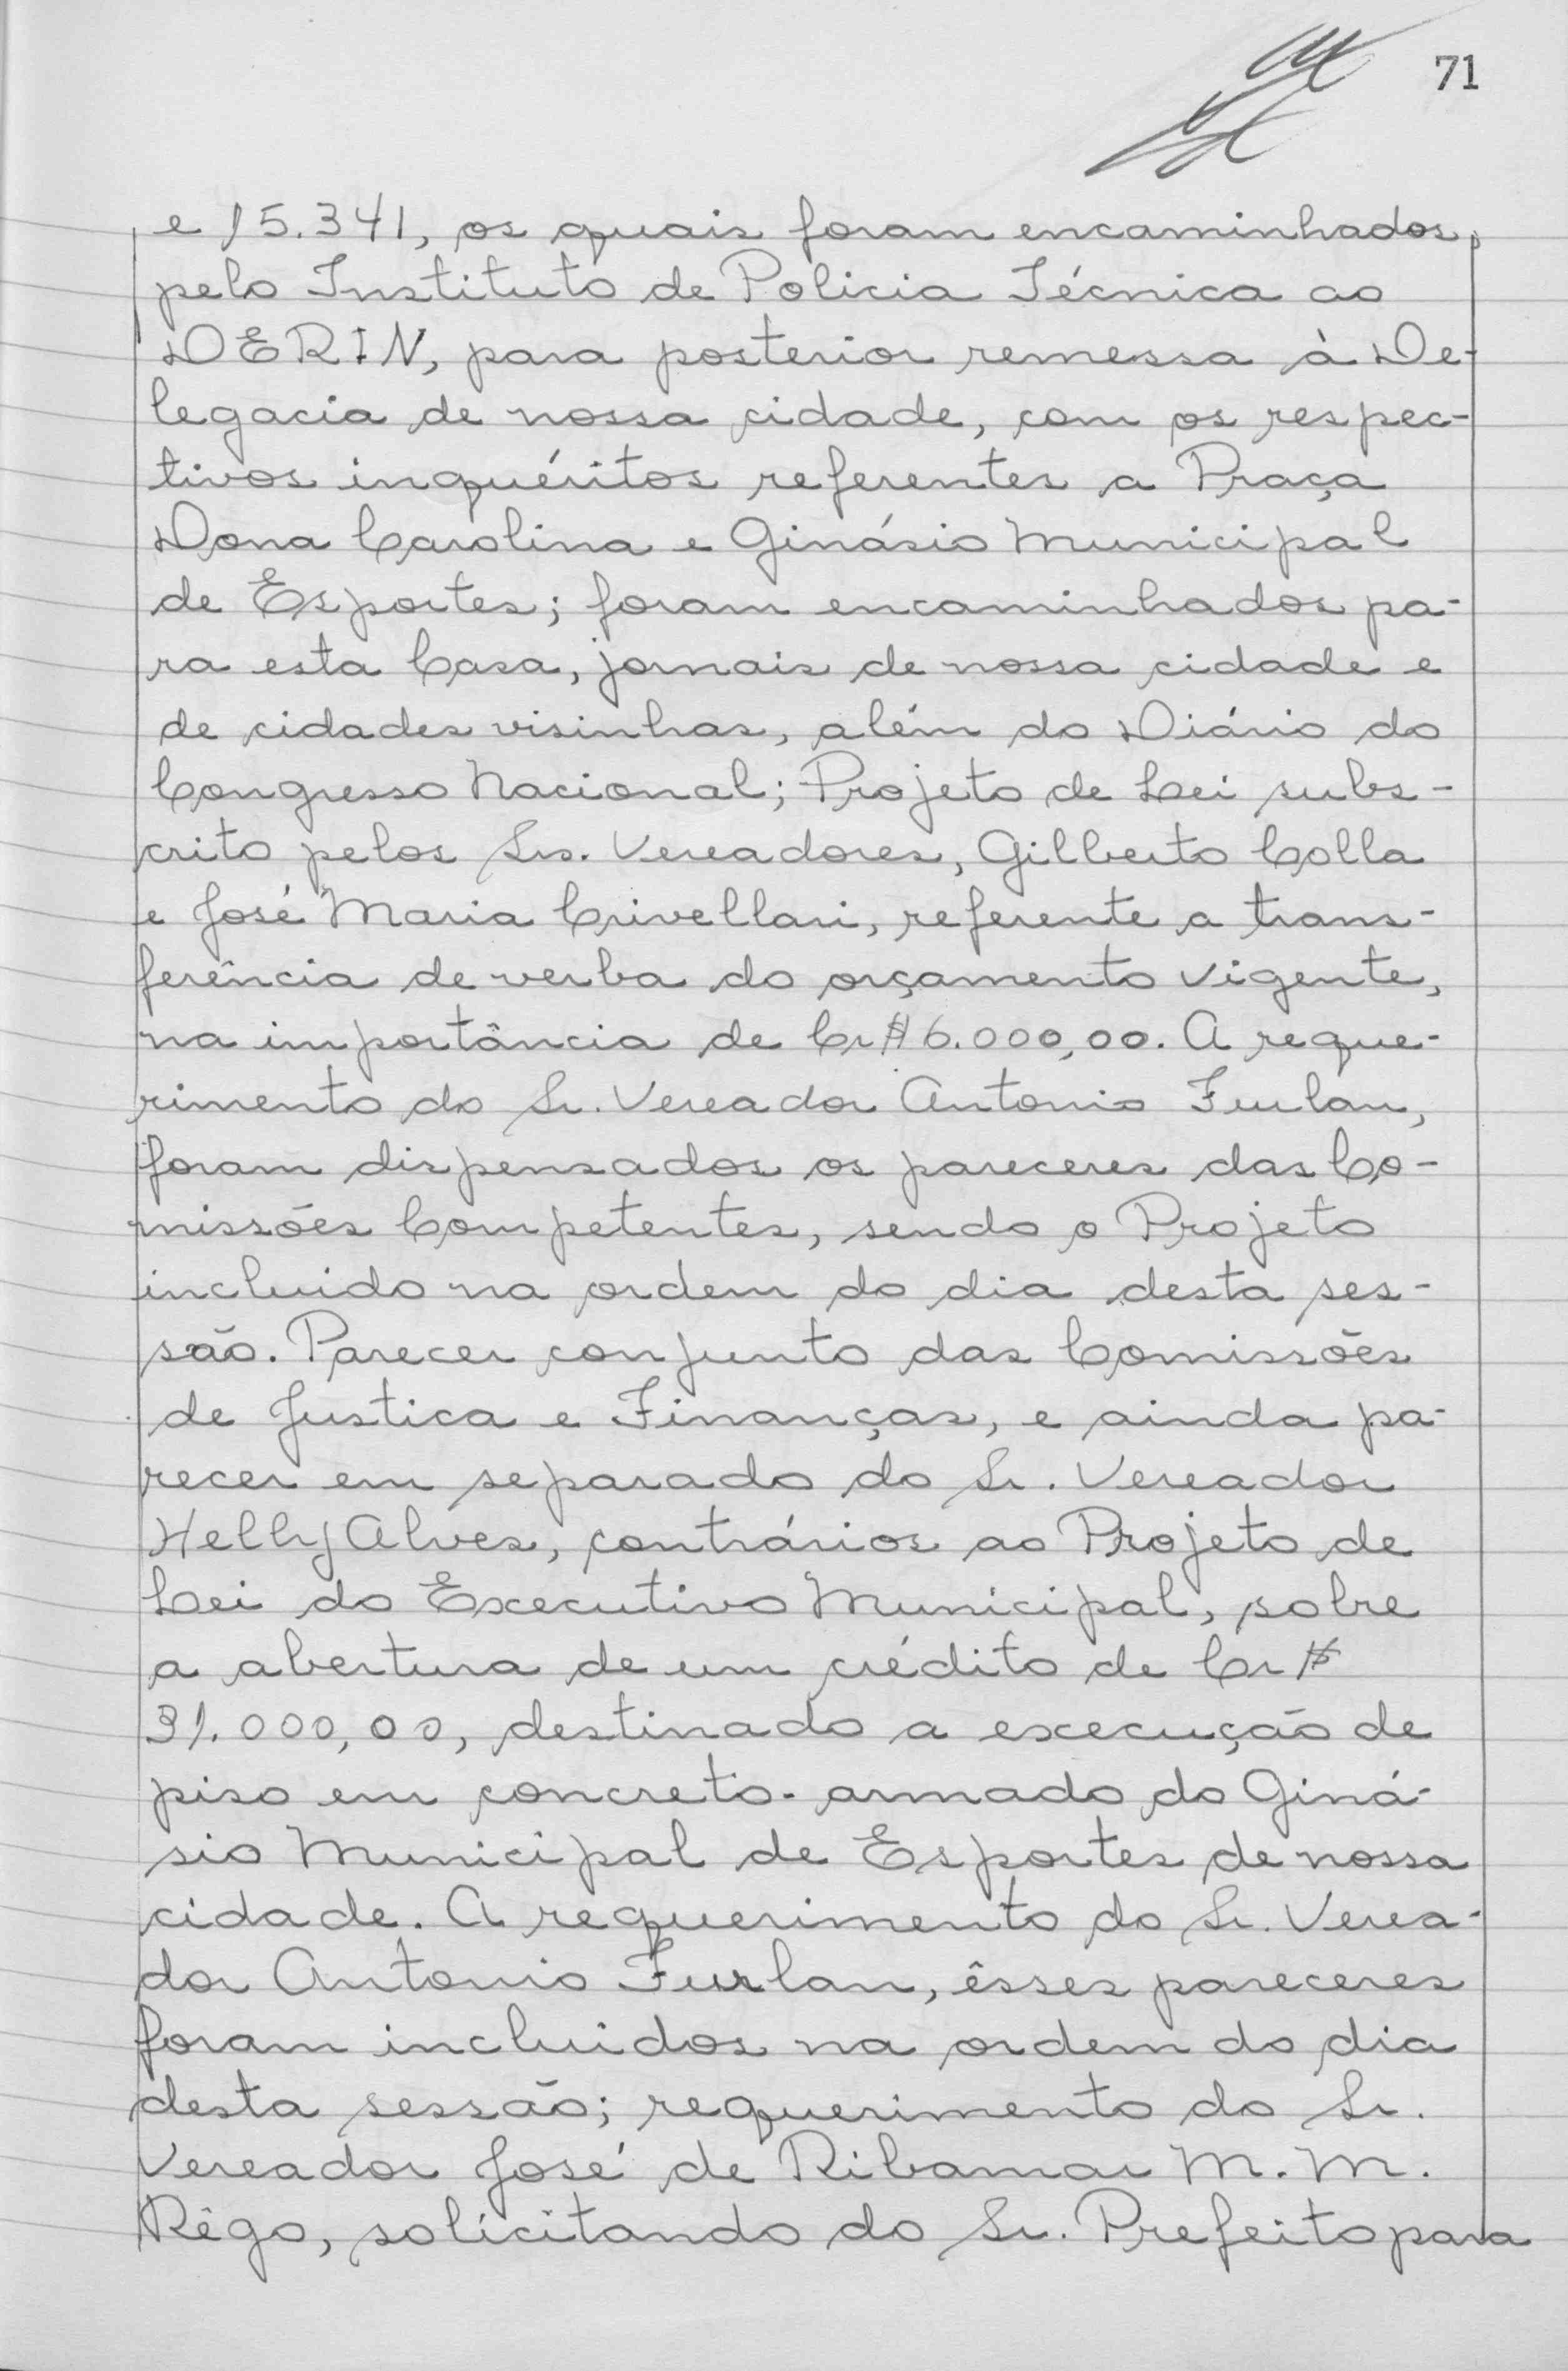 71
e 15.341, os quais foram encaminhados,
pelo Instituto de Policia Técnica ao
DERIN, para posterior remessa à De-
legacia de nossa cidade, com os respec-
tivos inquéritos referentes a Praça
Dona Carolina e Ginásio Municipal
de Esportes; foram encaminhados pa-
ra esta Casa, jornais de nossa cidade e
de cidades visinhas, além do Diário do
Congresso Nacional; Projeto de Lei subs-
crito pelos Srs. Vereadores, Gilberto Colla
e José Maria Crivellari, referente a trans-
ferência de verba do orçamento vigente,
na importância de Cr$ 6.000,00. A reque-
rimento do Sr. Vereador Antonio Furlan,
foram dispensados os pareceres das Co-
missões Competentes, sendo o Projeto
incluido na ordem do dia desta ses-
são. Parecer conjunto das Comissões
de Justica e Finanças, e ainda pa-
recer em separado do Sr. Vereador
Helly Alves, contrários ao Projeto de
Lei do Executivo Municipal, sobre
a abertura de um crédito de Cr$
31.000,00, destinado a execução de
piso em concreto-armado do Giná-
sio Municipal de Esportes de nossa
cidade. A requerimento do Sr. Verea-
dor Antonio Furlan, êsses pareceres
foram incluidos na ordem do dia
desta sessão; requerimento do Sr.
Vereador José de Ribamar M. M.
Rêgo, solicitando do Sr. Prefeito para